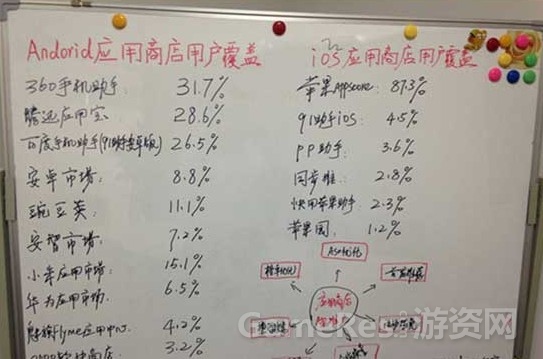 Andorid应用商店用户覆盖
360手机助手 31.7%
腾迅应用宝 28.6%
百度手机助手(91助手安卓版) 26.5%
安卓市场: 8.8%
豌豆荚: 11.1%
安智市场: 7.2%
小米应用市场: 15.1%
华为应用市场. 6.5%
魅族flyme应用中心 4.2%
3.2%
iOS应用商店用户覆盖
苹果Appscore: 87.3%
91助手iOS: 4.5%
PP助手: 3.6%
同步推: 2.8%
快用苹果助手: 2.3%
苹果园: 1.2%
ASO优化
应用商店
GameRes游资网
www.GameRes.com